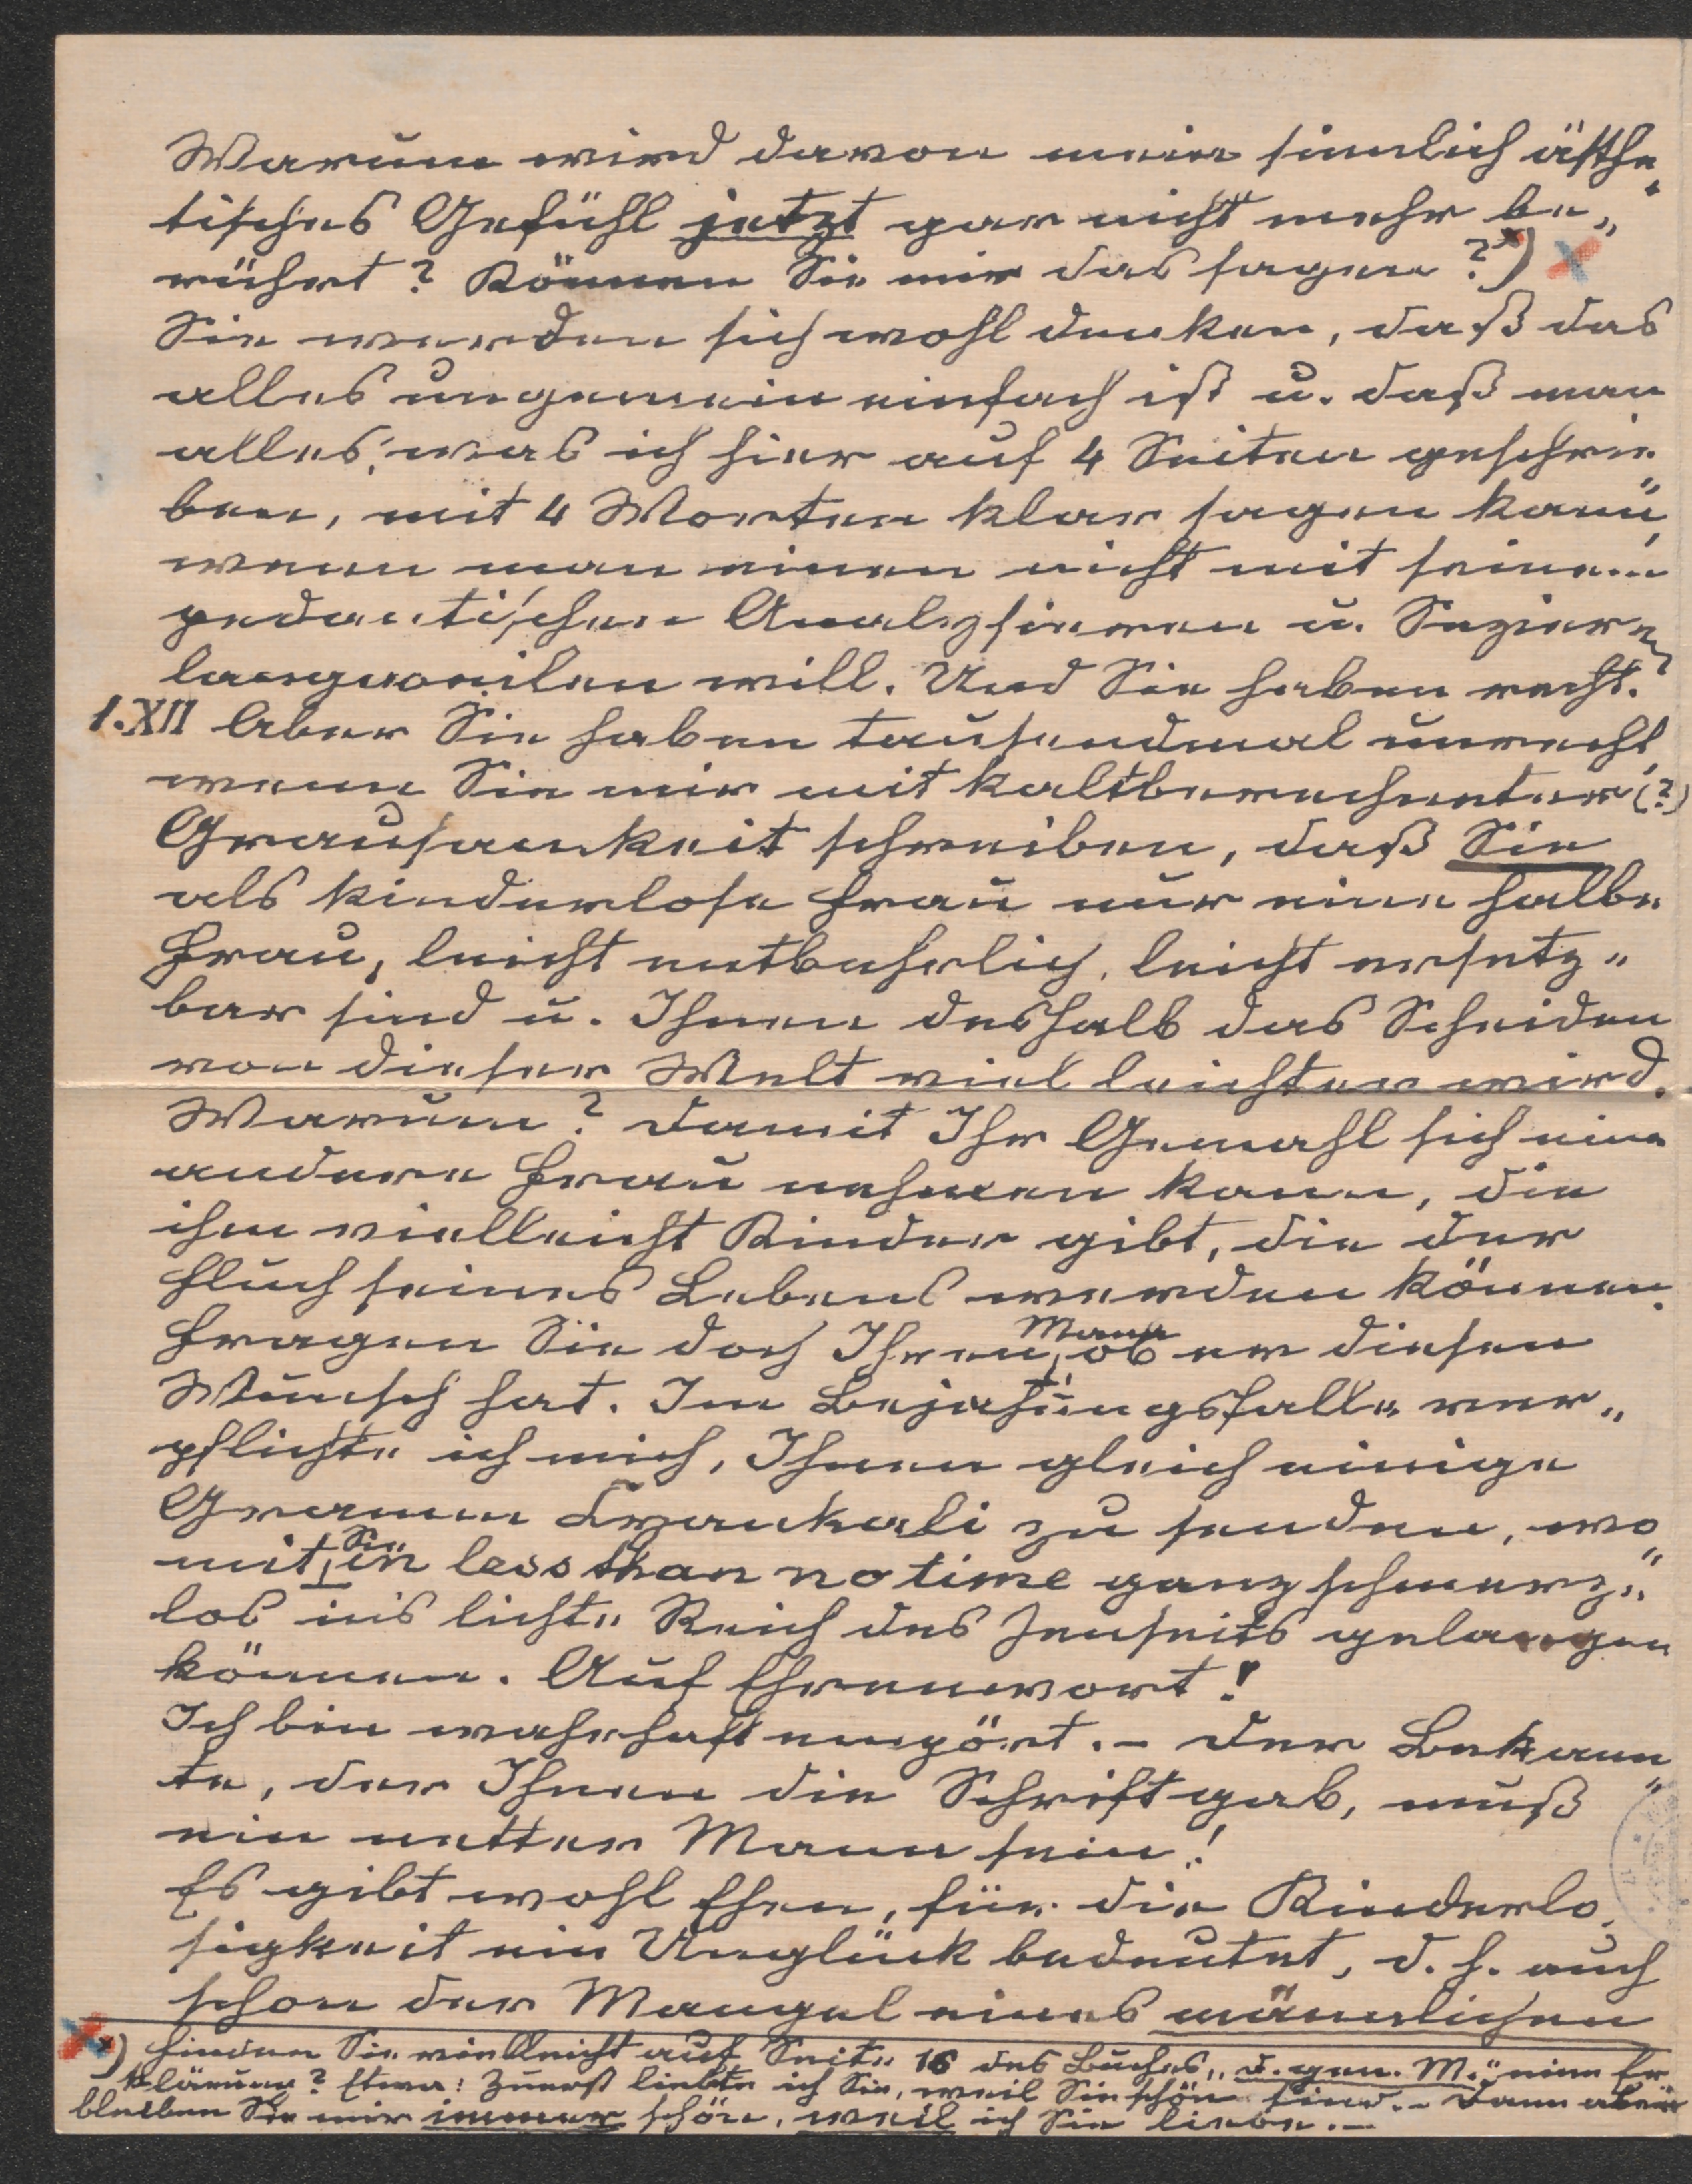 Warum wird davon mein sinnlich ästhe-
tisches Gefühl jetzt gar nicht mehr be-
rührt? Können Sie mir das sagen?*) x
Sie werden sich wohl denken, daß das
alles ungemein einfach ist u. daß man
alles, was ich hier auf 4 Seiten geschrie-
ben, mit 4 Worten klar sagen kann,
wenn man einen nicht mit seinem
pedantischen Analysieren u. Sezieren
langweilen will. Und Sie haben recht.
1.XII Aber Sie haben tausendmal unrecht,
wenn Sie mir mit kaltberechneter (?)
Grausamkeit schreiben, daß Sie
als kinderlose Frau nur eine halbe
Frau, leicht entbehrlich, leicht ersetz-
bar sind u. Ihnen deshalb das Scheiden
von dieser Welt viel leichter wird.
Warum? Damit Ihr Gemahl sich eine
andere Frau nehmen kann, die
ihm vielleicht Kinder gibt, die der
Fluch seines Lebens werden können.
Fragen Sie doch Ihren Mann, ob er diesen
Wunsch hat. Im Bejahungsfalle ver-
pflichte ich mich, Ihnen gleich einige
Gramm Zyankali zu senden, wo-
mit Sie in less than no time ganz schmerz-
los ins lichte Reich des Jenseits gelangen
können. Auf Ehrenwort!
Ich bin wahrhaft empört. – Der Bekann-
te, der Ihnen die Schrift gab, muß
ein netter Mann sein!
Es gibt wohl Ehen, für die Kinderlo-
sigkeit ein Unglück bedeutet, d. h. auch
schon der Mangel eines männlichen
x *) Finden Sie vielleicht auf Seite 16 des Buches „d. gen. M." eine Er-
klärung? Etwa: Zuerst liebte ich Sie, weil Sie schön sind. – Dann aber
bleiben Sie mir immer schön, weil ich Sie liebe. –